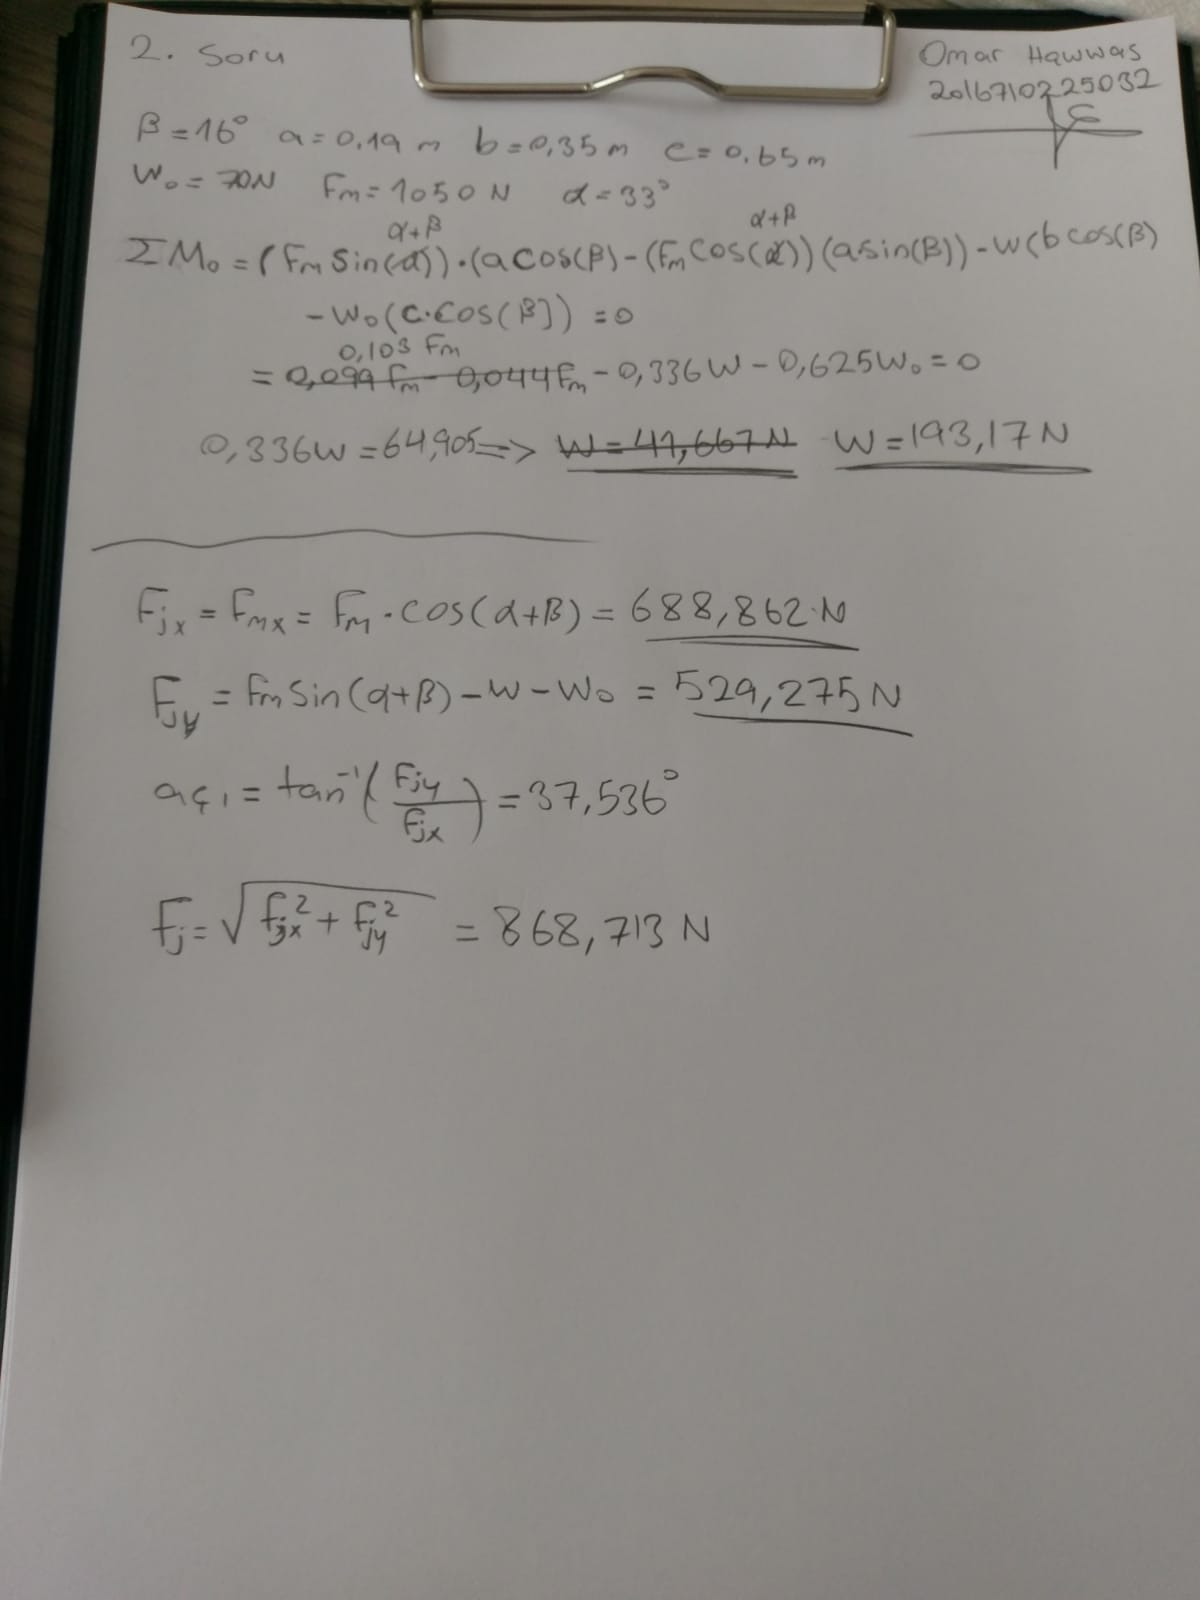 2. Soru
Omar Hawwas
2016710225032
β=16° a=0,19 m b=0,35 m c=0,65 m
W₀=70N Fm=1050 N α=33°
α+β α+β
ΣM₀=(Fm Sin(α))·(a cos(β)-(Fm Cos(α))(a sin(β))-W(b cos(β)
-W₀(c·Cos(β)) =0
0,103 Fm
= 0,099 Fm - 0,044 Fm - 0,336W - 0,625W₀ = 0
0,336W = 64,905 => W=41,667N W=193,17N
Fjx = Fmx = Fm·cos(α+β) = 688,862 N
Fjy = Fm Sin(α+β) -W-W₀ = 529,275N
açı = tan⁻¹(Fjy/Fjx) = 37,536°
Fj=√Fjx²+Fjy² = 868,713 N